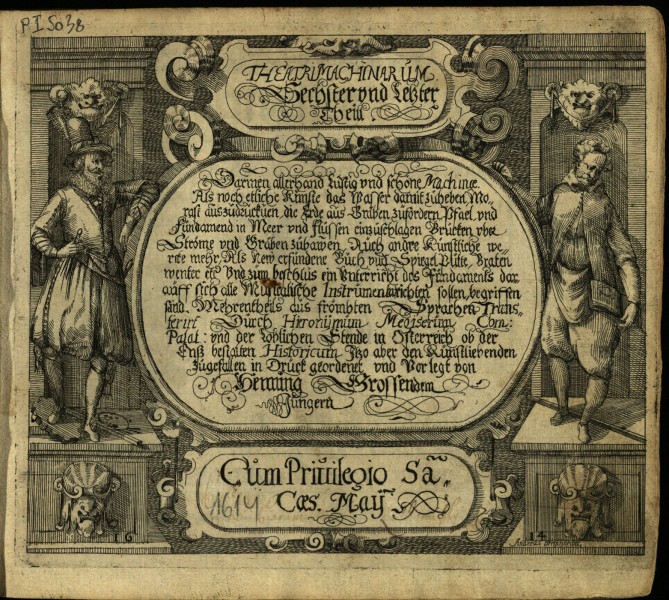 P I 5038
THEATRI MACHINARUM
Sechster vnd Letzter
Theil
Darinen allerhand Lustig vnd schöne Machinæ
Als noch etliche Künste das Wasser damit zuheben Mo-
rast auszudrucken die Erde aus Gräben zufördern Pfael vnd
Fundamend in Meer vnd flüssen einzuschlagen Brücken vber
Ströme vnd Gräben zubawen Auch andre Künstliche we-
rcke mehr, Als New erfundene Buch vnd Spiegel Braten
wender etc. Vnd zum beschlus ein Unterricht des Fundaments dar
auff sich alle Musicalische Instrumenta richten sollen, begriffen
sind. Mehrentheils aus frömbten Sprachen Trans-
ferirt Durch Hieronymum Megiserum Com:
Palat: vnd der löblichen Stende in Österreich ob der
Enß bestalten Historicum Jtzo aber den Kunstliebenden
Zugefallen in Druck geordenet, vnd Vorlegt von
Henning Grossen dem
Jüngern
Cum Priuilegio Sã.
Cæs. May.
1614
16
14